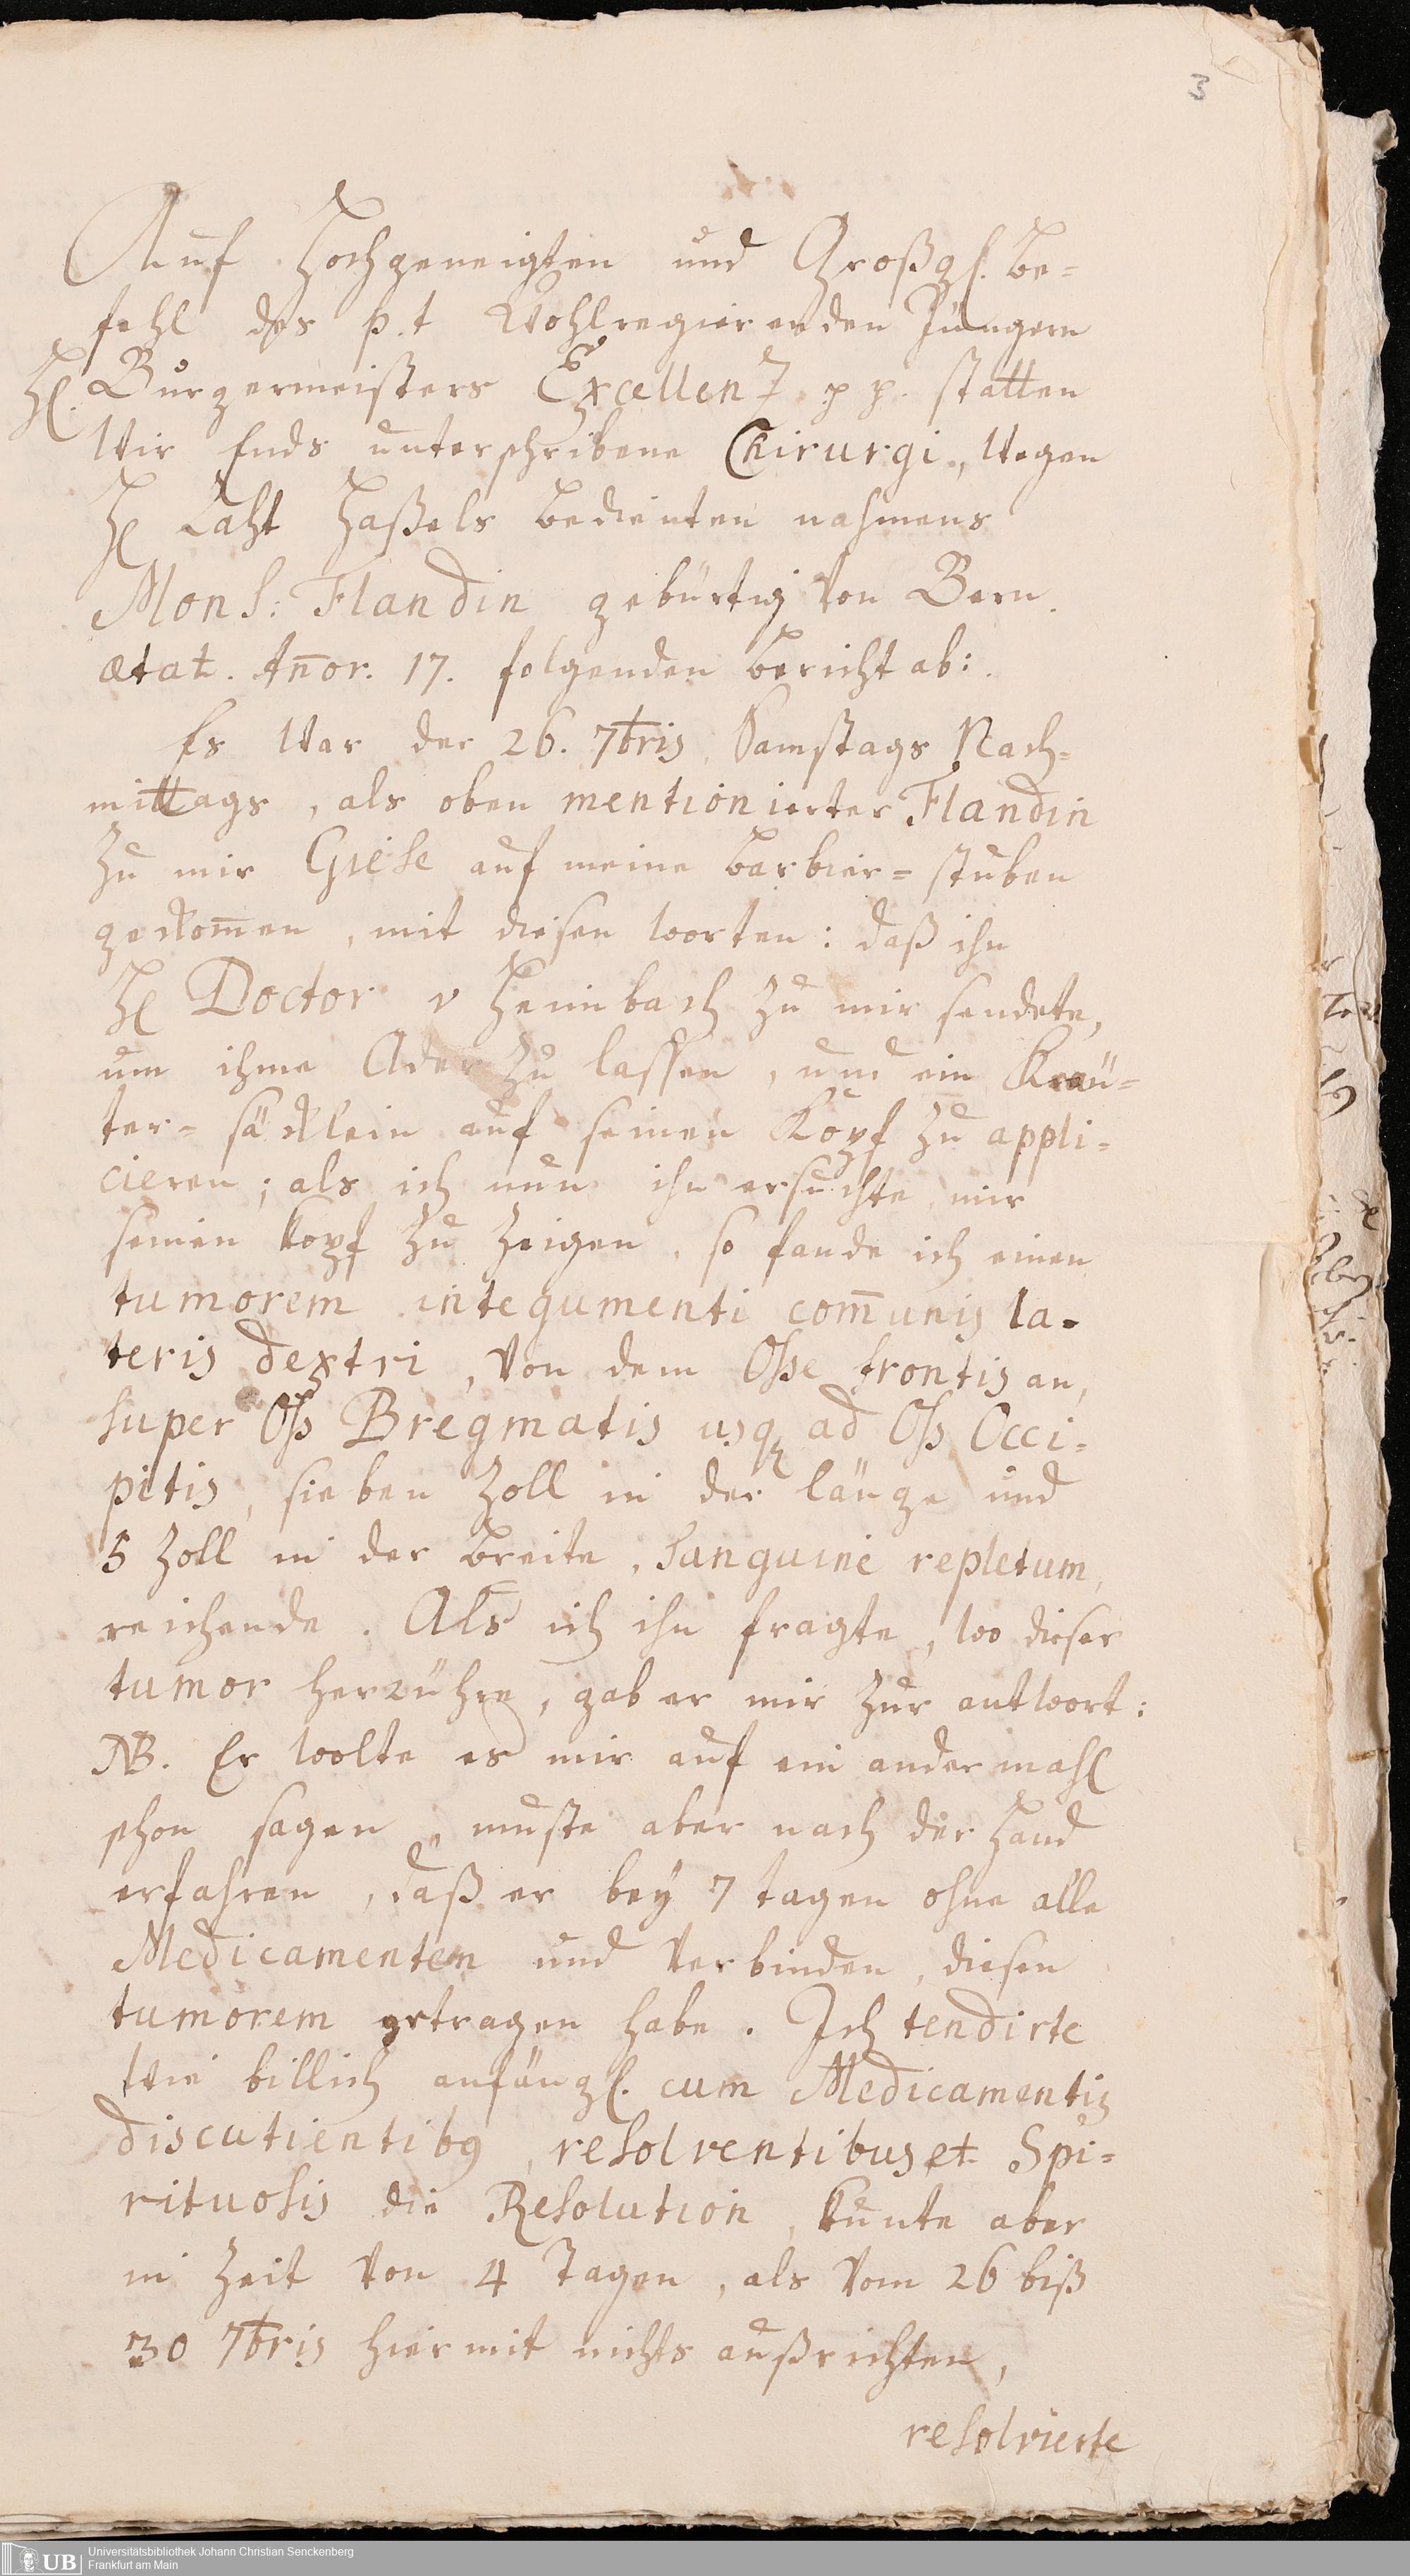 3
Auf Hochgeneigten und Großgl. Be-
fehl des p.t Wohlregierenden Jüngern
H. Burgermeisters Excellenz p p. statten
Wir Ends unterschribene Chirurgi, Wegen
H Haßels bedienten nahmens
Mons: Flandin gebürtig Von Bern.
ætat. An̅or. 17. folgenden bericht ab:
Es War der 26. 7bris Samstags Nach-
mittags, als oben mentionierter Flandin
Zu mir Giese auf meine barbier-stuben
gekom̅en, mit diesen worten: daß ihn
H Doctor v Heimbach zu mir sendete,
um ihme Ader zu lassen, und ein Kräu-
ter-säcklein auf seinen Kopf zu appli-
cieren; als ich nun ihn ersuchte mir
seinen kopf zu zeigen, so fande ich einen
tumorem integumenti com̅unis la-
teris dextri, Von dem Osse frontis an,
super Oß Bregmatis usq ad Oß Occi-
pitis, sieben Zoll in der länge und
5 Zoll in der breite, sanguine repletum,
reichende. Als ich ihn fragte, wo dieser
tumor herrühre, gab er mir zur antwort:
NB. Er wolte es mir auf ein ander mahl
schon sagen, muste aber nach der Hand
erfahren, daß er bey 7 tagen ohne alle
Medicamenten und Verbinden, diesen
tumorem getragen habe. Ich tendirte
Wie billich anfängl. cum Medicamentis
discutientib9, resolventibus et Spi-
rituosis die Resolution, kunte aber
in Zeit Von 4 Tagen, als Vom 26 biß
30 7bris hiermit nichts außrichten,
resolvierte
UB Universitätsbibliothek Johann Christian Senckenberg
Frankfurt am Main